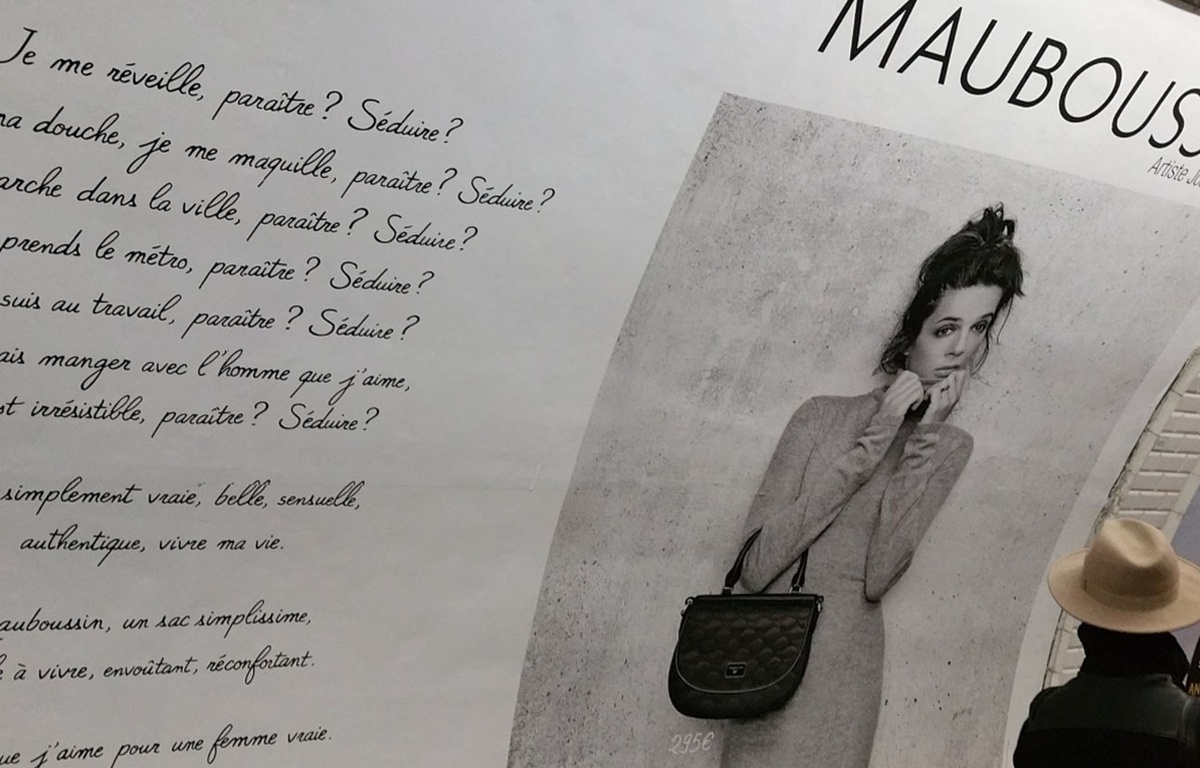 Je me réveille, paraître ? Séduire ?
douche, je me maquille, paraître ? Séduire ?
dans la ville, paraître ? Séduire ?
prends le métro, paraître ? Séduire ?
suis au travail, paraître ? Séduire ?
manger avec l'homme que j'aime,
irrésistible, paraître ? Séduire ?
simplement vraie, belle, sensuelle,
authentique, vivre ma vie.
auboussin, un sac simplissime,
à vivre, envoûtant, réconfortant.
j'aime pour une femme vraie.
MAUBOUSS
Artiste Jo
295€